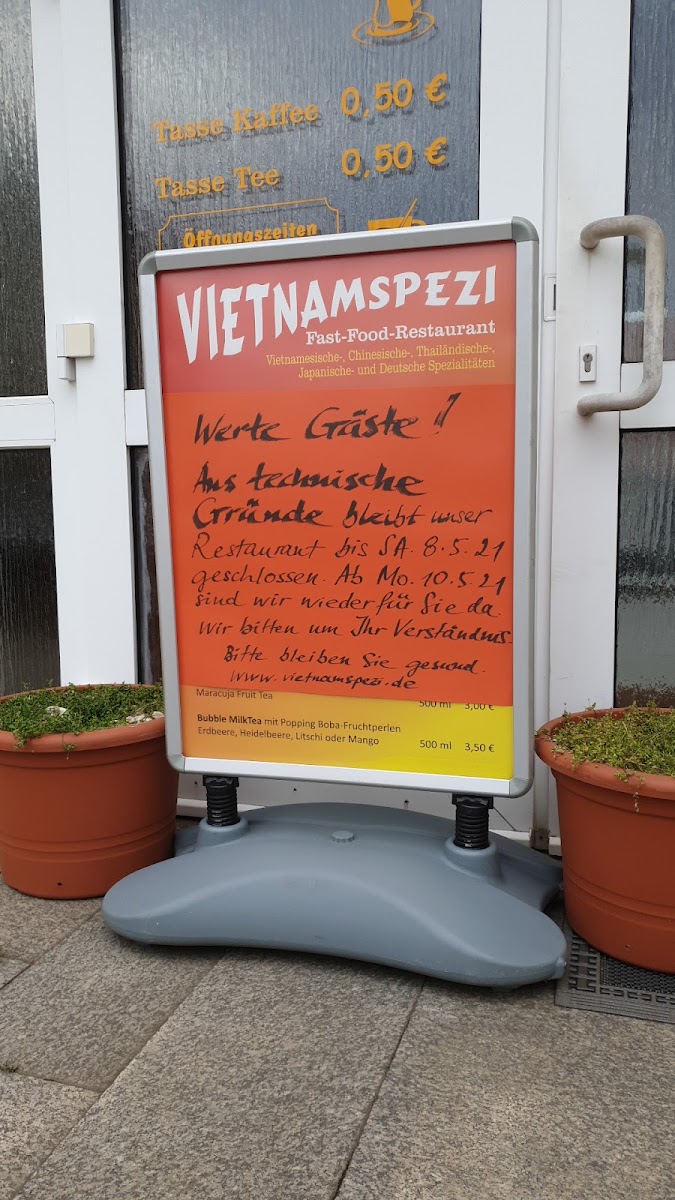 Tasse Kaffee 0,50 €
Tasse Tee 0,50 €
Öffnungszeiten
VIETNAMSPEZI
Fast-Food-Restaurant
Vietnamesische-, Chinesische-, Thailändische-,
Japanische- und Deutsche Spezialitäten
Werte Gäste!
Aus technische
Gründe bleibt unser
Restaurant bis SA. 8.5.21
geschlossen. Ab Mo. 10.5.21
sind wir wieder für Sie da.
Wir bitten um Ihr Verständnis.
Bitte bleiben Sie gesund.
www.vietnamspezi.de
Maracuja Fruit Tea 500 ml 3,00 €
Bubble MilkTea mit Popping Boba-Fruchtperlen
Erdbeere, Heidelbeere, Litschi oder Mango 500 ml 3,50 €